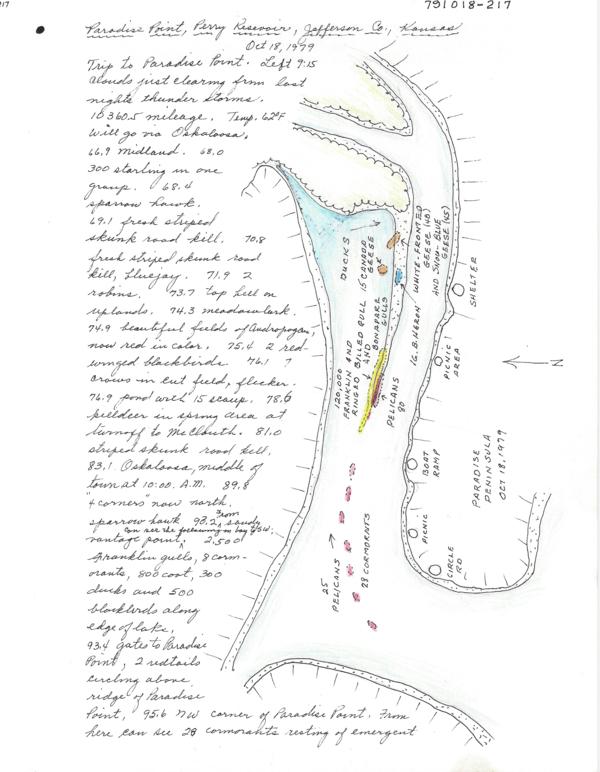 217
791018-217
Paradise Point, Perry Resevoir, Jefferson Co., Kansas
Oct 18, 1979
Trip to Paradise Point. Left 9:15
Clouds just clearing from last
nights thunder storms.
10360.5 mileage. Temp. 62°F
Will go via Oskaloosa.
66.9 Midland. 68.0
300 starling in one
group. 68.4
sparrow hawk.
69.1 fresh striped
skunk road kill. 70.8
fresh striped skunk road
kill, bluejay. 71.9 2
robins. 73.7 top hill on
uplands. 74.3 meadowlark.
74.9 beautiful fields of Andropogon,
now red in color. 75.4 2 red-
winged blackbirds 76.1 7
crows in cut field, flicker.
76.9 pond with 15 scaup. 78.6
killdeer in spring area at
turnoff to McClouth. 81.0
striped skunk road kill.
83.1 Oskaloosa, middle of
town at 10:00 A.M. 89.8
"4 corners" now north.
sparrow hawk 93.2, from sandy
can see the following in bay to SW:
vantage point, 2,500
franklin gulls, 8 corm-
orants, 800 coot, 300
ducks and 500
blackbirds along
edge of lake.
93.4 gates to Paradise
Point, 2 redtails
circling above
ridge of Paradise
Point, 95.6 NW corner of Paradise Point. From
here can see 28 cormorants resting of emergent
DUCKS
15 CANADA
GEESE
WHITE-FRONTED
GEESE (40)
AND SNOW-BLUE
GEESE (65)
1 G. B. HERON
120,000
FRANKLIN AND
RINGED BILLED GULL
AND
BONAPARE
GULLS
PELICANS
80
25
PELICANS
28 CORMORNTS
SHELTER
PICNIC
AREA
N
BOAT
RAMP
PICNIC
CIRCLE
RD.
PARADISE
PENINSULA
OCT 18, 1979